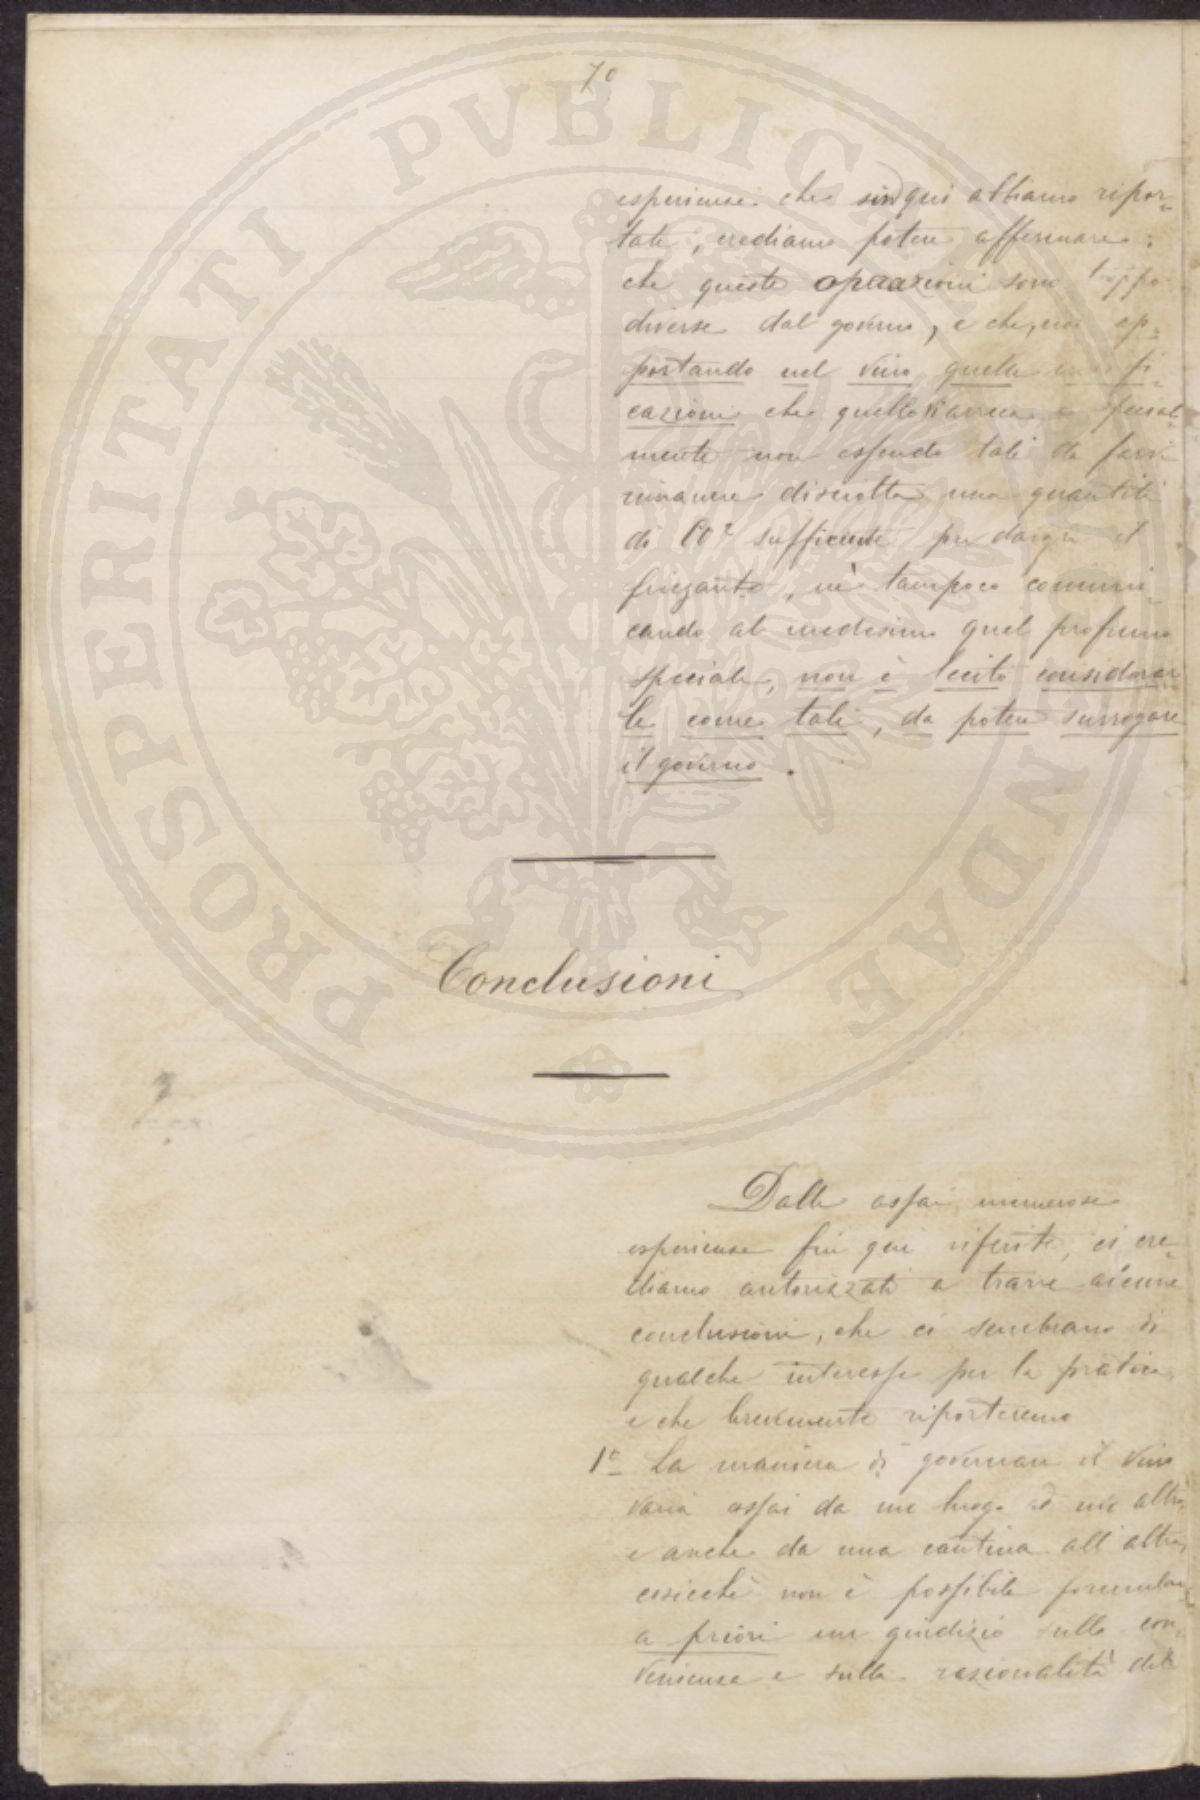 70
PROSPERITATI PVBLICAE
NDAE
esperienze che sin qui abbiamo ripor=
tate, crediamo potere affermare:
che queste operazioni sono troppo
diverse dal governo, e che, non ap=
portando nel vino quelle
cazioni che quello
mente non essendo tali da farvi
rimanere disciolta una quantità
di CO² sufficiente per dargli il
frizzante, nè tampoco comuni=
cando al medesimo quel profumo
speciale, non è lecito considerar
le come tali, da potere surrogare
il governo.
Conclusioni
Dalle assai numerose
esperienze fin qui riferite, ci cre=
diamo autorizzati a trarre alcune
conclusioni, che ci sembrano di
qualche interesse per la pratica,
e che brevemente riporteremo
1º La maniera di governare il vino
varia assai da un luogo ad un altro,
e anche da una cantina all'altra,
cosicchè non è possibile formulare
a priori un giudizio sulla con=
venienza e sulla razionalità del